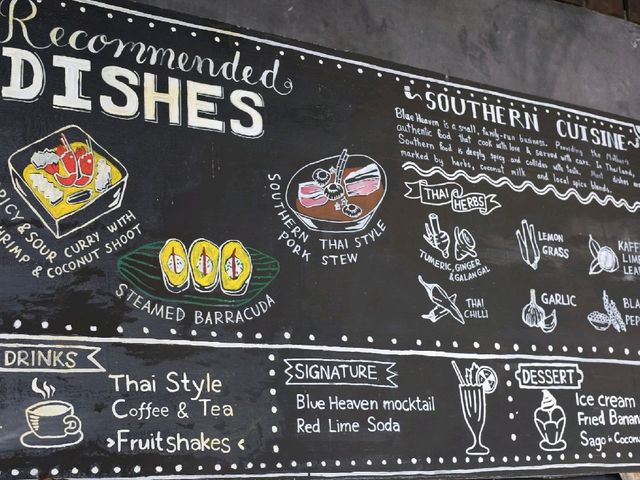 Recommended
DISHES
SPICY & SOUR CURRY WITH
SHRIMP & COCONUT SHOOT
STEAMED BARRACUDA
SOUTHERN THAI STYLE
PORK STEW
SOUTHERN CUISINE
Blue Heaven is a small, family-run business. Providing the
authentic food that cook with love & served with care. In Thailand,
Southern food is deeply spicy and dishes
marked by herbs, coconut milk and local spice blends.
THAI HERBS
TUMERIC, GINGER
& GALANGAL
LEMON
GRASS
KAFF
LIME
LEA
THAI
CHILLI
GARLIC
BLA
PEP
DRINKS
Thai Style
Coffee & Tea
>Fruitshakes<
SIGNATURE
Blue Heaven mocktail
Red Lime Soda
DESSERT
Ice cream
Fried Banan
Sago in Coconu